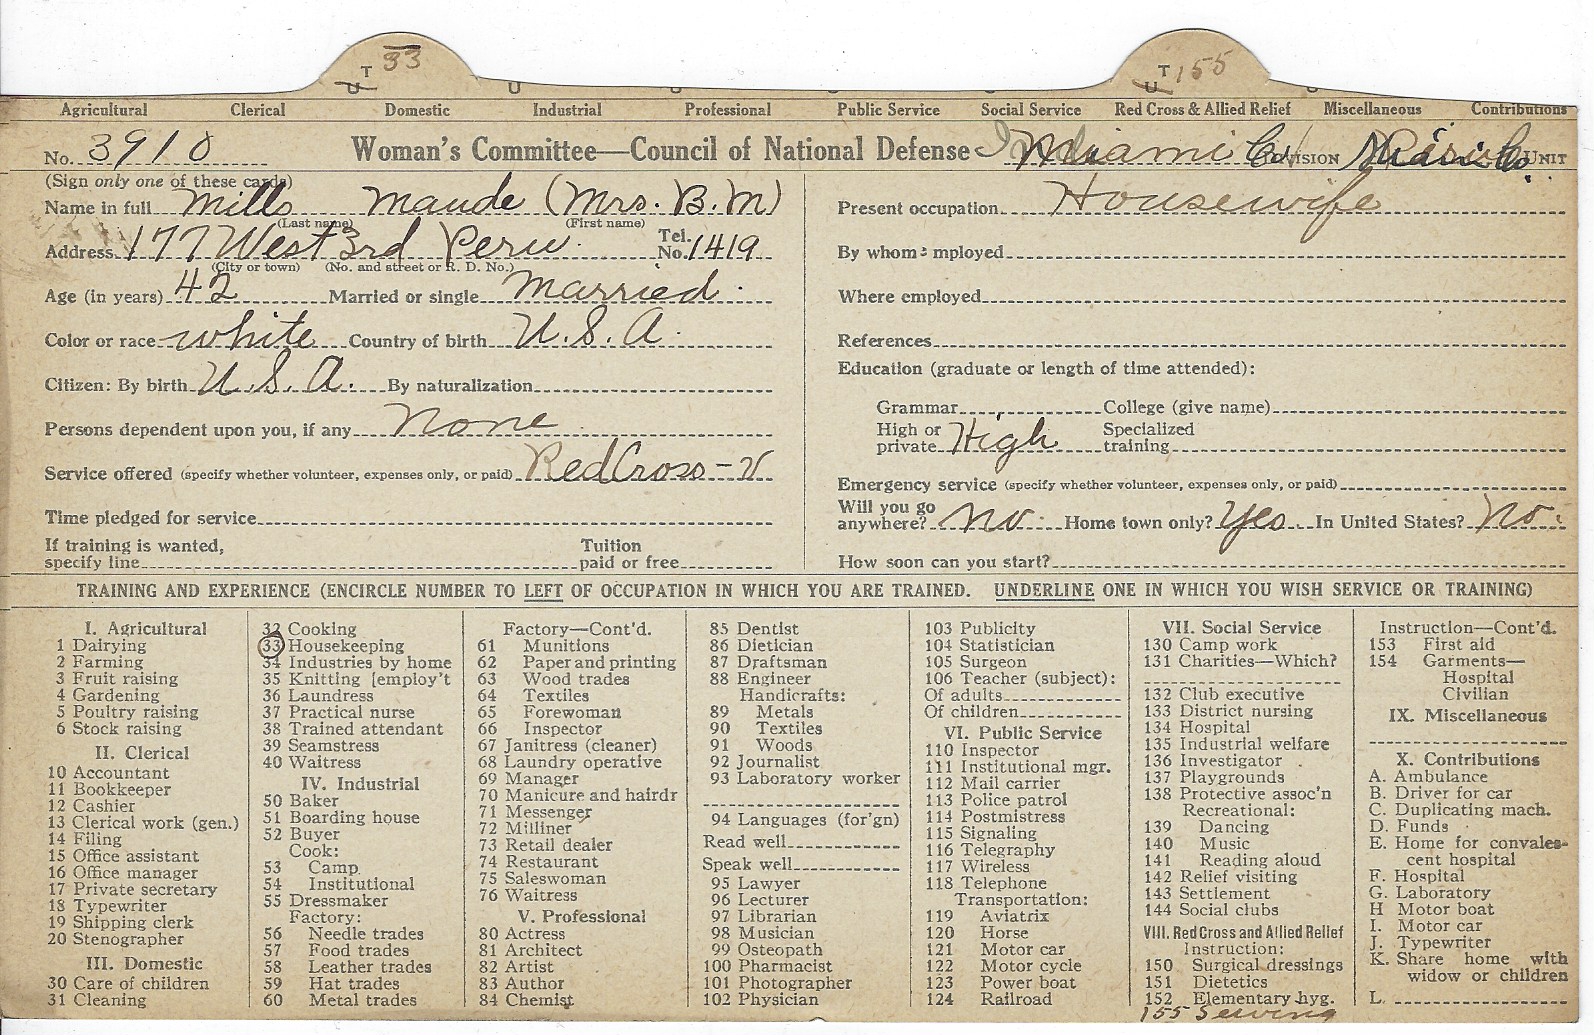 T 33 T 155
U U
Agricultural Clerical Domestic Industrial Professional Public Service Social Service Red Cross & Allied Relief Miscellaneous Contributions
No. 3910 Woman's Committee—Council of National Defense Ind Miami Co DIVISION UNIT
(Sign only one of these cards)
Name in full Mills Maude (Mrs. B. M)
(Last name) (First name)
Address 177 West 3rd Peru Tel. No. 1419
(City or town) (No. and street or R. D. No.)
Age (in years) 42 Married or single Married
Color or race white Country of birth U. S. A.
Citizen: By birth U. S. A. By naturalization
Persons dependent upon you, if any None
Service offered (specify whether volunteer, expenses only, or paid) Red Cross - V
Time pledged for service
If training is wanted, specify line Tuition paid or free
Present occupation Housewife
By whom mployed
Where employed
References
Education (graduate or length of time attended):
Grammar College (give name)
High or private High Specialized training
Emergency service (specify whether volunteer, expenses only, or paid)
Will you go anywhere? No Home town only? Yes In United States? No.
How soon can you start?
TRAINING AND EXPERIENCE (ENCIRCLE NUMBER TO LEFT OF OCCUPATION IN WHICH YOU ARE TRAINED. UNDERLINE ONE IN WHICH YOU WISH SERVICE OR TRAINING)
I. Agricultural
1 Dairying
2 Farming
3 Fruit raising
4 Gardening
5 Poultry raising
6 Stock raising
II. Clerical
10 Accountant
11 Bookkeeper
12 Cashier
13 Clerical work (gen.)
14 Filing
15 Office assistant
16 Office manager
17 Private secretary
18 Typewriter
19 Shipping clerk
20 Stenographer
III. Domestic
30 Care of children
31 Cleaning
32 Cooking
33 Housekeeping
34 Industries by home
35 Knitting [employ't
36 Laundress
37 Practical nurse
38 Trained attendant
39 Seamstress
40 Waitress
IV. Industrial
50 Baker
51 Boarding house
52 Buyer
Cook:
53 Camp
54 Institutional
55 Dressmaker
Factory:
56 Needle trades
57 Food trades
58 Leather trades
59 Hat trades
60 Metal trades
Factory—Cont'd.
61 Munitions
62 Paper and printing
63 Wood trades
64 Textiles
65 Forewoman
66 Inspector
67 Janitress (cleaner)
68 Laundry operative
69 Manager
70 Manicure and hairdr
71 Messenger
72 Milliner
73 Retail dealer
74 Restaurant
75 Saleswoman
76 Waitress
V. Professional
80 Actress
81 Architect
82 Artist
83 Author
84 Chemist
85 Dentist
86 Dietician
87 Draftsman
88 Engineer
Handicrafts:
89 Metals
90 Textiles
91 Woods
92 Journalist
93 Laboratory worker
94 Languages (for'gn)
Read well
Speak well
95 Lawyer
96 Lecturer
97 Librarian
98 Musician
99 Osteopath
100 Pharmacist
101 Photographer
102 Physician
103 Publicity
104 Statistician
105 Surgeon
106 Teacher (subject):
Of adults
Of children
VI. Public Service
110 Inspector
111 Institutional mgr.
112 Mail carrier
113 Police patrol
114 Postmistress
115 Signaling
116 Telegraphy
117 Wireless
118 Telephone
Transportation:
119 Aviatrix
120 Horse
121 Motor car
122 Motor cycle
123 Power boat
124 Railroad
VII. Social Service
130 Camp work
131 Charities—Which?
132 Club executive
133 District nursing
134 Hospital
135 Industrial welfare
136 Investigator
137 Playgrounds
138 Protective assoc'n
Recreational:
139 Dancing
140 Music
141 Reading aloud
142 Relief visiting
143 Settlement
144 Social clubs
VIII. Red Cross and Allied Relief
Instruction:
150 Surgical dressings
151 Dietetics
152 Elementary hyg.
155 Sewing
Instruction—Cont'd.
153 First aid
154 Garments—
Hospital
Civilian
IX. Miscellaneous
X. Contributions
A. Ambulance
B. Driver for car
C. Duplicating mach.
D. Funds
E. Home for convales-
cent hospital
F. Hospital
G. Laboratory
H Motor boat
I. Motor car
J. Typewriter
K. Share home with
widow or children
L.